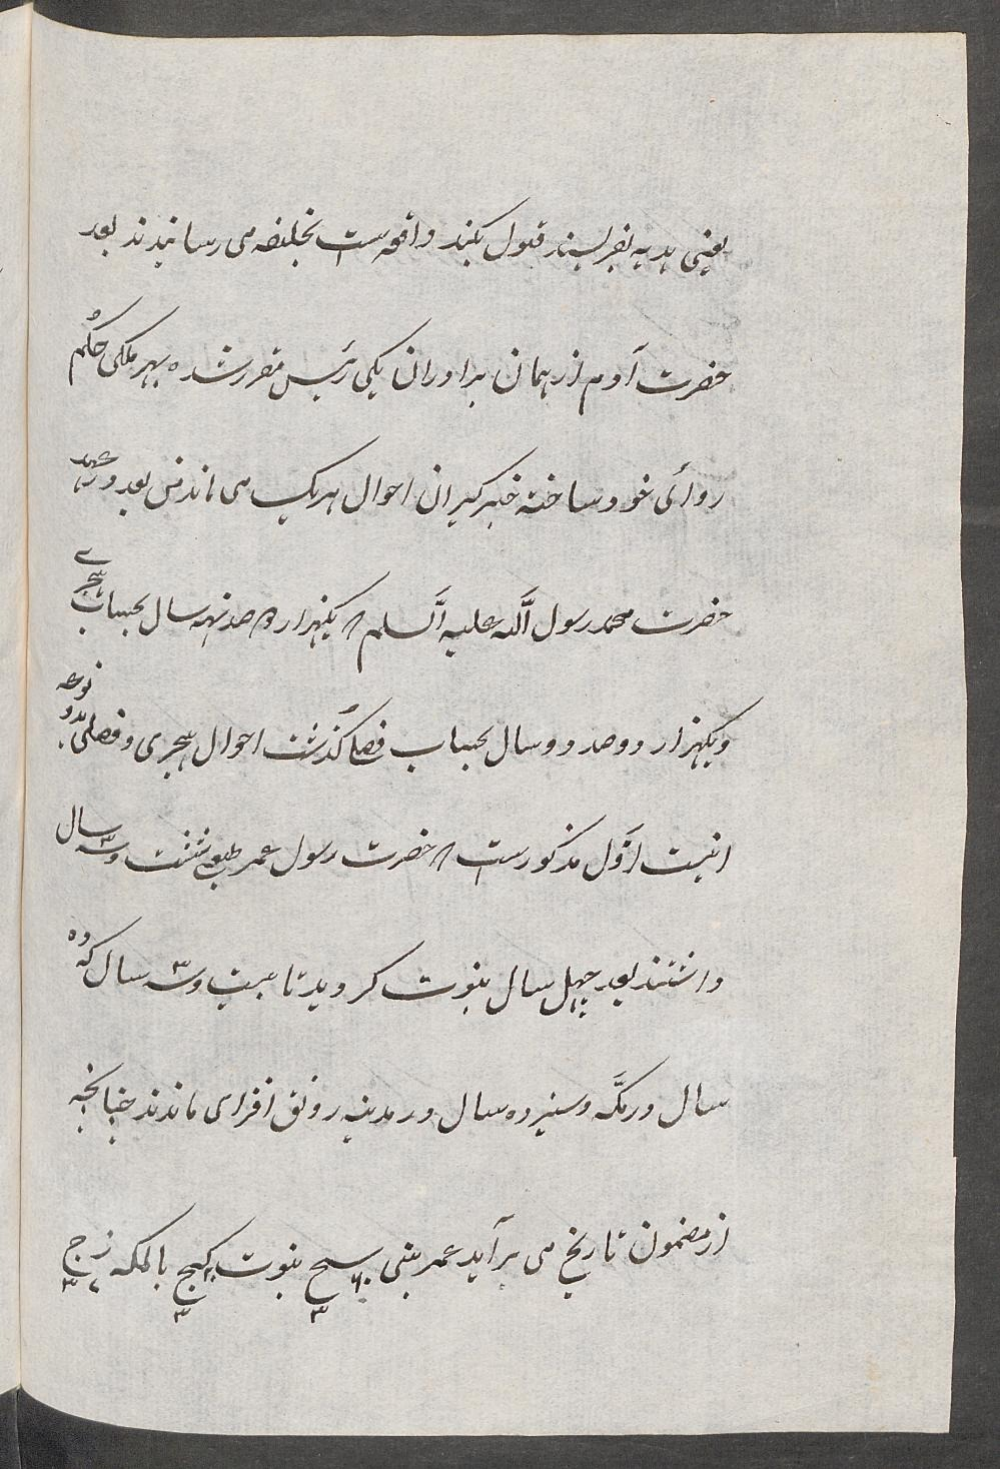 یعنی هدیه بفرلیسند قبول بکند واقعه ست بخلیفه می رسانیدند بعد
حضرت آدم از همان برادران یکی رئیس مقرر شده بهر ملکی حکم
روائی خود ساخته خبرگیران احوال هریک می ماند من بعد در عهد
حضرت محمد رسول الله علیه السلم یکهزار دوصد نهه سال بحساب هجرے
ویکهزار دوصد دو سال بحساب فصلی گذشت احوال هجری و فصلی
اینست اول مذکورست حضرت رسول عمر طبعی شصت وسه سال
داشتند بعد چهل سال نبوت کردید تا بیست وسه سال که ده
سال در مکه وسیزده سال در مدینه رونق افزای ماندند چنانچه
از مضمون تاریخ می برآید عمر نبی سج ۶۰ ۳ نبوت کج ۲۰ ۳ بالمکه ز ج ۷ ۳